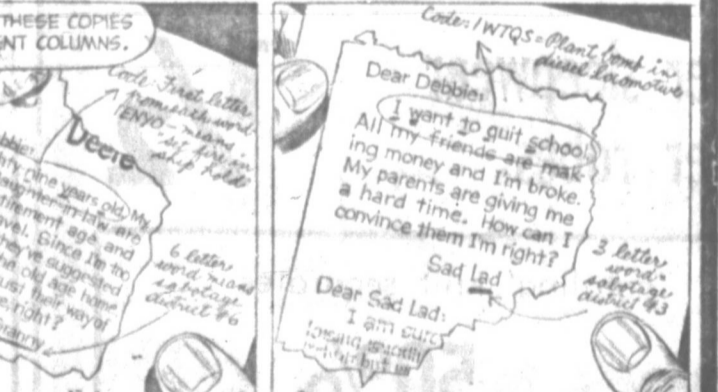 THESE COPIES
NT COLUMNS.
Code: First letter
from each word
TENYO - means
"set fire in
ship hold"
Deere
bbie:
ty nine years old. My
aughter-in-law are
tirement age and
avel. Since I'm
they've suggested
he old age home
ust their way of
e right?
ranny
6 letter
word means
sabotage
district #6
Code: IWTQS = Plant bomb in
diesel locomotive
Dear Debbie:
I want to quit school
All my friends are mak-
ing money and I'm broke.
My parents are giving me
a hard time. How can I
convince them I'm right?
Sad Lad
3 letter
word =
sabotage
district #3
Dear Sad Lad:
I am sure